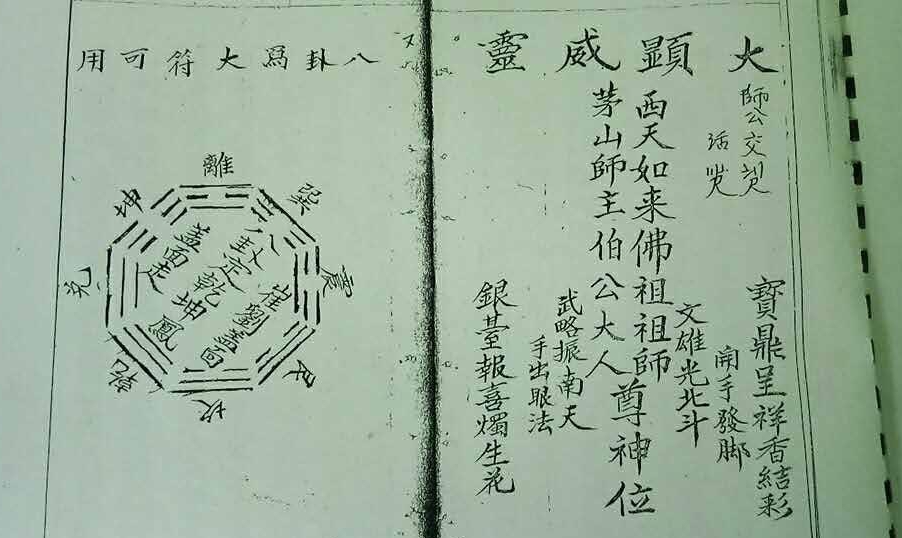 大顯威靈
師公交契
寶鼎呈祥香結彩
開手發脚
文雄光北斗
西天如来佛祖祖師
茅山師主伯公大人
尊神位
武略振南天
手出眼法
銀臺報喜燭生花
八卦爲大符可用
離
巽
震
艮
坎
乾
兌
坤
八卦定乾坤鳳
蓋面走
崔劉蓋面